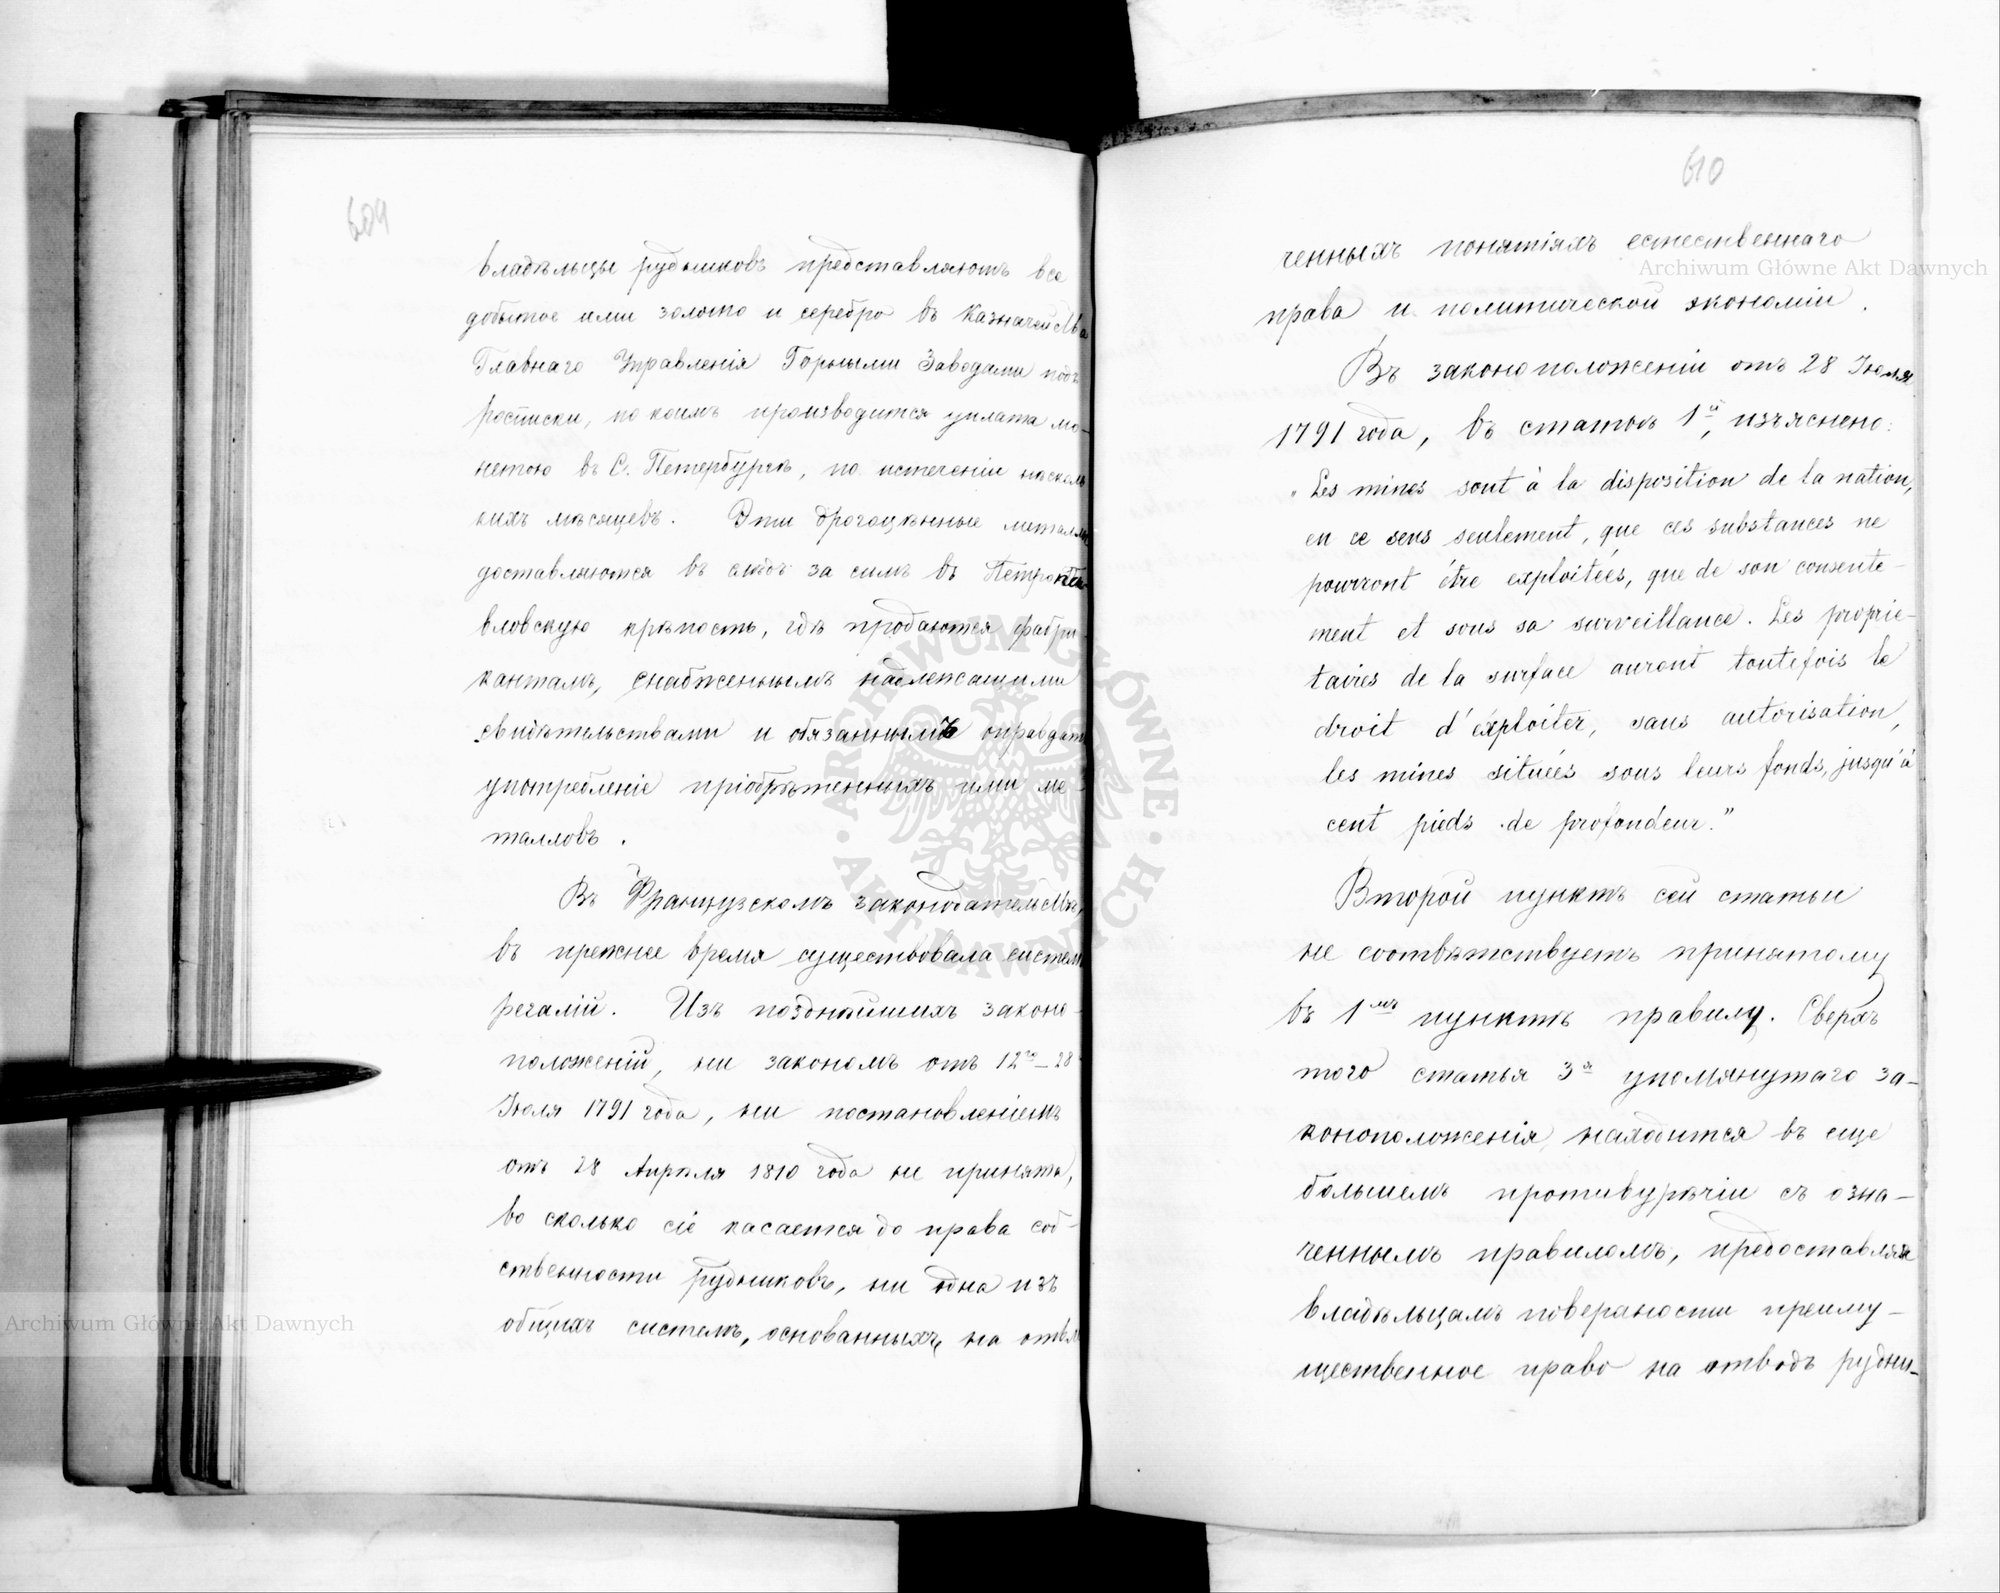 609
владѣльцы рудниковъ представляютъ все
добытое ими золото и серебро въ Казначейства
Главнаго Управленія Горными Заводами подъ
росписки, по коимъ производится уплата мо-
нетою въ С. Петербургѣ, по истеченіи нѣсколь
кихъ мѣсяцевъ. Эти драгоцѣнные металлы
доставляются въ слѣдъ за симъ въ Петропа
вловскую крѣпость, гдѣ продаются фабри-
кантамъ, снабженнымъ надлежащими
свидѣтельствами и обязаннымъ оправдать
употребленіе пріобрѣтенныхъ ими ме-
талловъ.
Въ Французскомъ законодательствѣ,
въ прежнее время существовала система
регалій. Изъ позднѣйшихъ законо-
положеній, ни закономъ отъ 12го-28
Іюля 1791 года, ни постановленіемъ
отъ 28 Апрѣля 1810 года не принята,
во сколько сіе касается до права соб-
ственности рудниковъ, ни одна изъ
общихъ системъ, основанныхъ на отвле
610
ченныхъ понятіяхъ естественнаго
права и политической экономіи.
Въ законоположеніи отъ 28 Іюля
1791 года, въ статьѣ 1й, изъяснено:
"Les mines sont à la disposition de la nation,
en ce sens seulement, que ces substances ne
pourront être exploitées, que de son consente-
ment et sous sa surveillance. Les proprie-
taires de la surface auront toutefois le
droit d'exploiter, sans autorisation,
les mines situées sous leurs fonds, jusqu'à
cent pieds de profondeur."
Второй пунктъ сей статьи
не соотвѣтствуетъ принятому
въ 1мъ пунктѣ правилу. Сверхъ
того статья 3я упомянутаго за-
коноположенія находится въ еще
большемъ противурѣчіи съ озна-
ченнымъ правиломъ, предоставляя
владѣльцамъ поверхности преиму-
щественное право на отводъ рудни-
Archiwum Główne Akt Dawnych
Archiwum Główne Akt Dawnych
ARCHIWUM GŁÓWNE AKT DAWNYCH